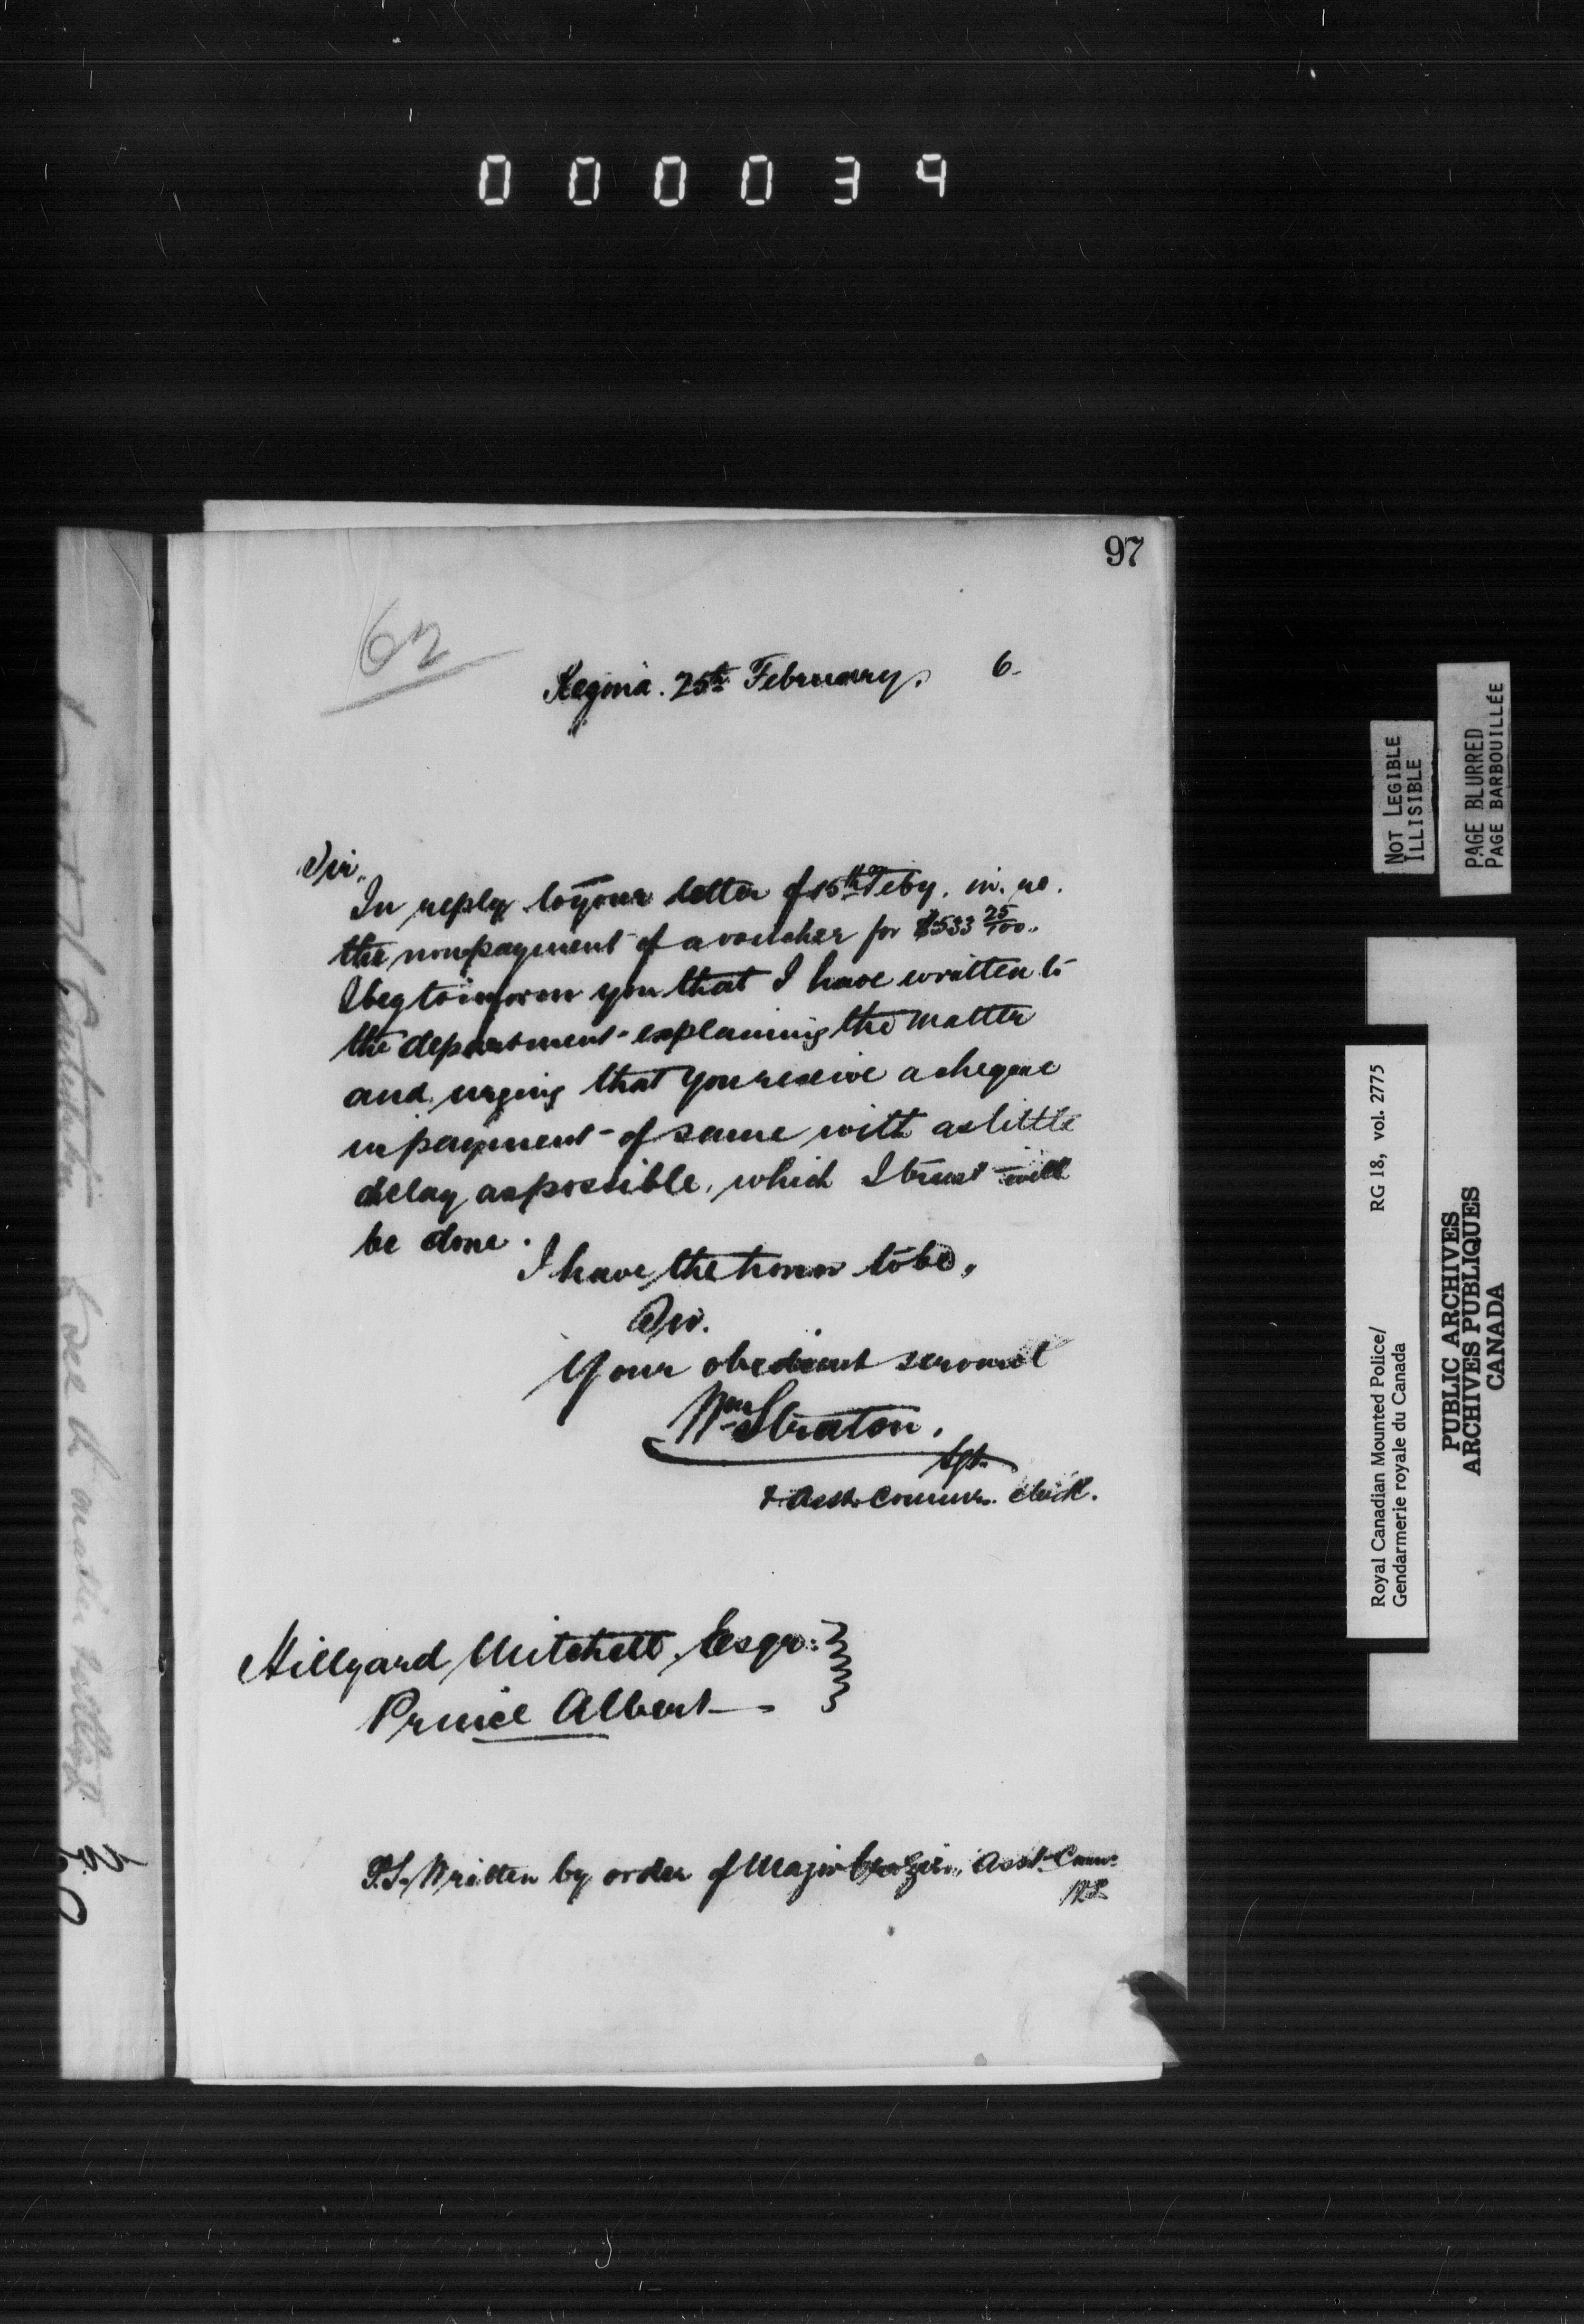 000039
97
62
Regina. 25th February. 6.
Sir,
In reply to your letter of 15th Feby. in. re.
the nonpayment of a voucher for $533 25/100.
I beg to inform you that I have written to
the department explaining the matter
and urging that you receive a cheque
in payment of same with as little
delay as possible, which I trust will
be done.
I have the honor to be,
Sir.
Your obedient servant
Wm Straton.
Sgt.
& Asst. Commr. Clerk.
Hillyard Mitchell, Esqr.
Prince Albert
P.S. Written by order of Major Crozier, Asst. Commr.
WS
NOT LEGIBLE
ILLISIBLE
PAGE BLURRED
PAGE BARBOUILLÉE
Royal Canadian Mounted Police/ RG 18, vol. 2775
Gendarmerie royale du Canada
PUBLIC ARCHIVES
ARCHIVES PUBLIQUES
CANADA